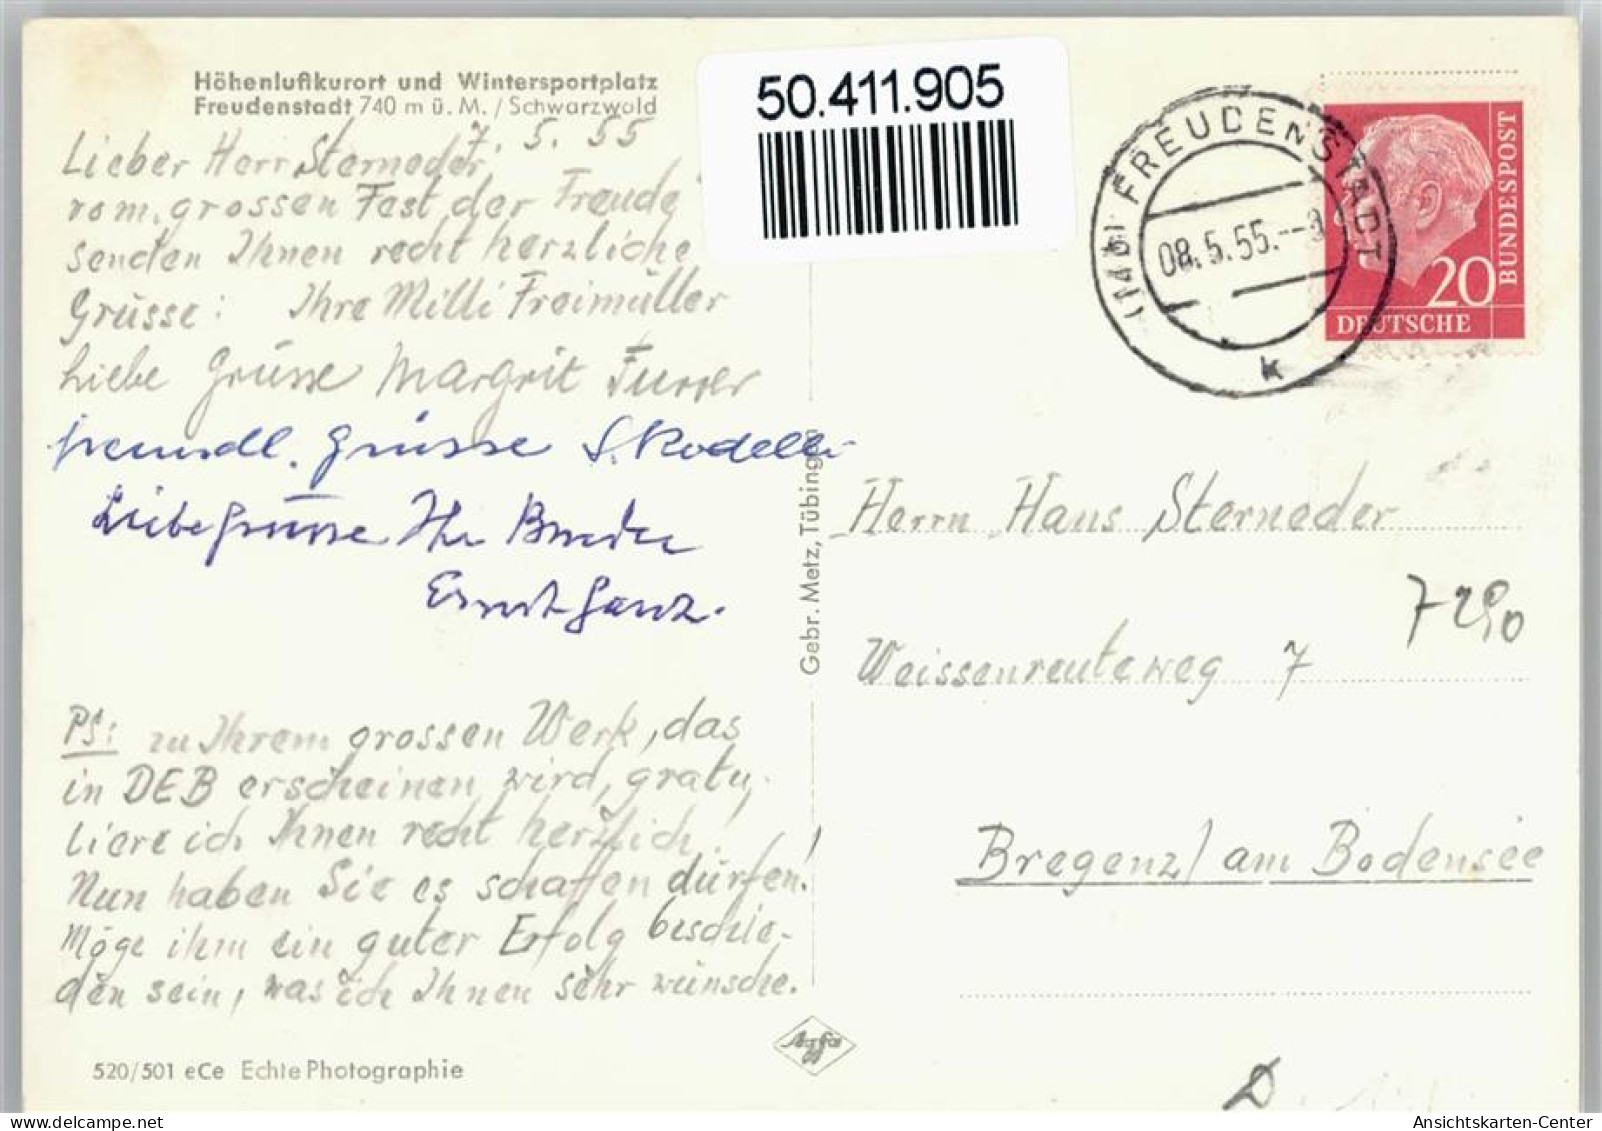 Höhenluftkurort und Wintersportplatz
Freudenstadt 740 m ü. M. / Schwarzwald
7. 5. 55
Lieber Herr Sterneder
vom grossen Fest der Freude
senden Ihnen recht herzliche
Grüsse: Ihre Milli Freimüller
Liebe Grüsse Margrit Furrer
freundl. Grüsse S. Rodelli
Liebe Grüsse Ihr Bruder
Ernst Ganz.
PS: zu Ihrem grossen Werk, das
in DEB erscheinen wird, gratu-
liere ich Ihnen recht herzlich!
Nun haben Sie es schaffen dürfen!
Möge ihm ein guter Erfolg beschie-
den sein, was ich Ihnen sehr wünsche.
520/501 eCe Echte Photographie
Gebr. Metz, Tübingen
Agfa
50.411.905
(14b) FREUDENSTADT
08.5.55.--8
k
BUNDESPOST
20
DEUTSCHE
Herrn Hans Sterneder
7290
Weissenreuteweg 7
Bregenz / am Bodensee
D
Ansichtskarten-Center